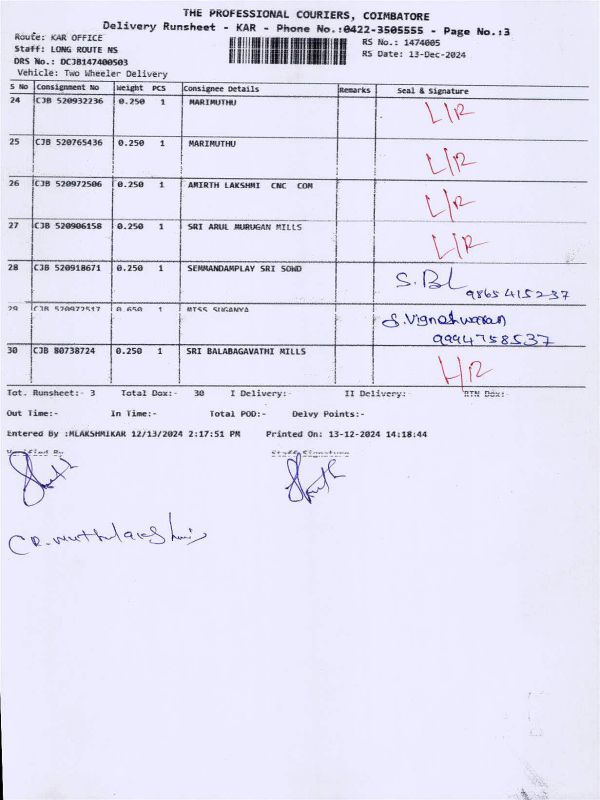 THE PROFESSIONAL COURIERS, COIMBATORE
Delivery Runsheet - KAR - Phone No.:0422-3505555 - Page No.:3
Route: KAR OFFICE RS No.: 1474005
Staff: LONG ROUTE NS RS Date: 13-Dec-2024
DRS No.: DCJB147400503
Vehicle: Two Wheeler Delivery
S No Consignment No Weight PCS Consignee Details Remarks Seal & Signature
24 CJB 520932236 0.250 1 MARIMUTHU L/R
25 CJB 520765436 0.250 1 MARIMUTHU L/R
26 CJB 520972506 0.250 1 AMIRTH LAKSHMI CNC COM L/R
27 CJB 520906158 0.250 1 SRI ARUL MURUGAN MILLS L/R
28 CJB 520918671 0.250 1 SEMMANDAMPLAY SRI SOWD S.Bl
9865415237
29 CJB 520972517 0.650 1 MISS SUGANYA S.Vigneshwaran
9994758537
30 CJB 80738724 0.250 1 SRI BALABAGAVATHI MILLS L/R
Tot. Runsheet:- 3 Total Dox:- 30 I Delivery:- II Delivery:- RTN Dox:-
Out Time:- In Time:- Total POD:- Delvy Points:-
Entered By :MLAKSHMIKAR 12/13/2024 2:17:51 PM Printed On: 13-12-2024 14:18:44
Verified By Staff Signature